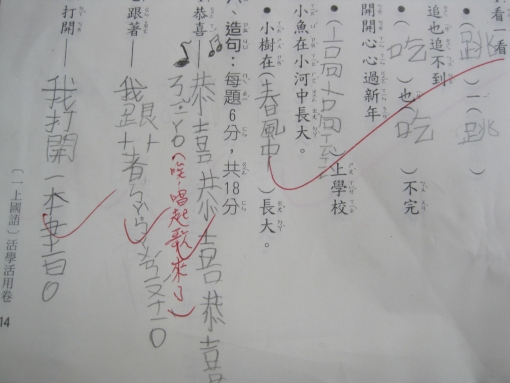 看一看
•(跳)一(跳)
追也追不到
•(吃)也(吃)不完
開開心心過新年
•(高高)上學校
小魚在小河中長大。
•小樹在(春風中)長大。
造句：每題6分，共18分
恭喜—恭喜恭喜恭喜
(唉！唱起歌來了)
跟著—我跟著
打開—我打開一本書。
(一上國語)活學活用卷
14